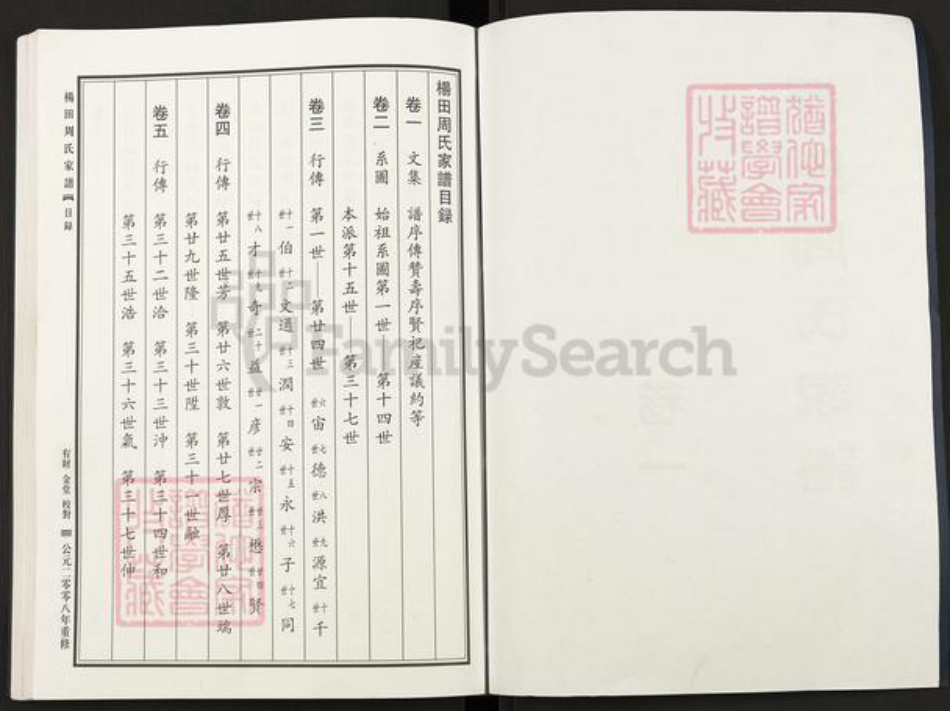 楊田周氏家譜目録
卷一 文集 譜序傳贊壽序賢祀産議約等
卷二 系圖 始祖系圖第一世——第十四世
本派第十五世——第三十七世
卷三 行傳 第一世——第廿四世 六世宙 七世德 八世洪 九世源宜 十世千
十一世伯 十二世文通 十三世潤 十四世安 十五世永 十六世子 十七世同
十八世才 十九世奇 二十世益 廿一世彦 廿二世宗 廿三世懋 廿四世賢
卷四 行傳 第廿五世芳 第廿六世敦 第廿七世厚 第廿八世瑞
第廿九世隆 第三十世陞 第三十一世融
卷五 行傳 第三十二世洽 第三十三世沖 第三十四世和
第三十五世浩 第三十六世氣 第三十七世伸
楊田周氏家譜 目録
有財 金堂 校對 公元二零零八年重修
猶他家譜學會收藏
猶他家譜學會收藏
FamilySearch